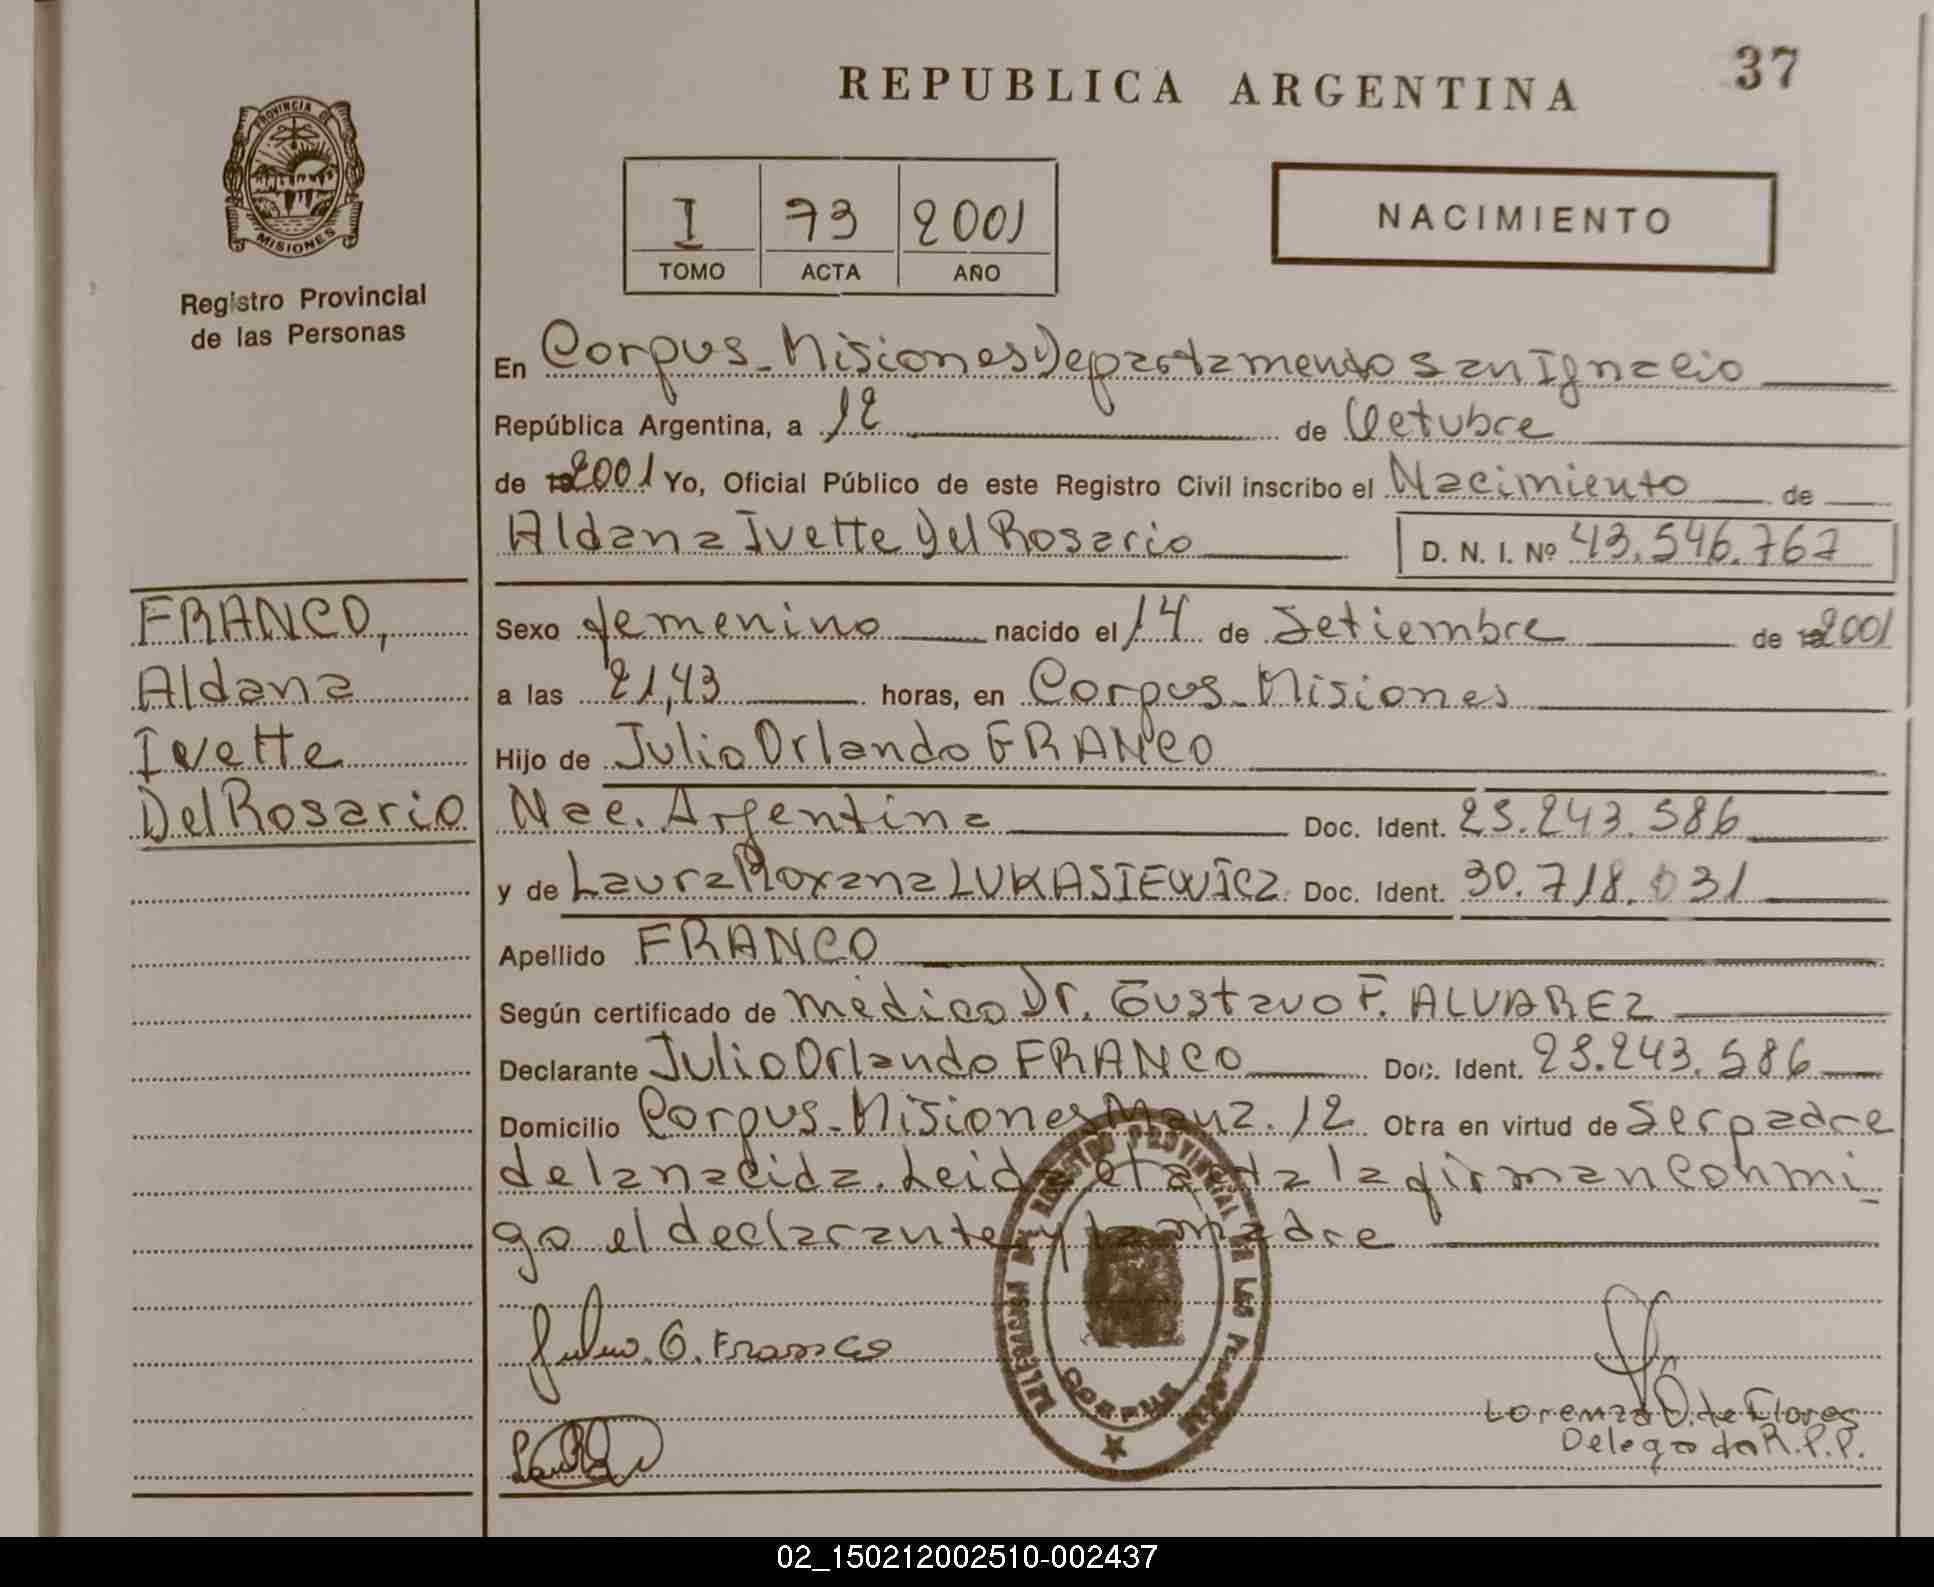 37
REPUBLICA ARGENTINA
PROVINCIA DE
MISIONES
Registro Provincial
de las Personas
I 73 2001
TOMO ACTA AÑO
NACIMIENTO
En Corpus-Misiones Departamento San Ignacio
República Argentina, a 12 de Octubre
de 2001 Yo, Oficial Público de este Registro Civil inscribo el Nacimiento de
Aldana Ivette Del Rosario D. N. I. Nº 43.546.767
FRANCO,
Aldana
Ivette
Del Rosario
Sexo femenino nacido el 14 de Setiembre de 2001
a las 21,43 horas, en Corpus-Misiones
Hijo de Julio Orlando FRANCO
Nac. Argentina Doc. Ident. 23.243.586
y de Laura Roxana LUKASIEWICZ Doc. Ident. 30.718.031
Apellido FRANCO
Según certificado de médico Dr. Gustavo F. ALVAREZ
Declarante Julio Orlando FRANCO Doc. Ident. 23.243.586
Domicilio Corpus-Misiones Manz. 12 Obra en virtud de Ser padre
de la nacida. Leida el acta la firman conmi-
go el declarante y la madre
DELEGACION DEL REGISTRO PROVINCIAL DE LAS PERSONAS
CORPUS
Julio. O. Franco
Lorenza O. de Flores
Delegada R.P.P.
02_150212002510-002437